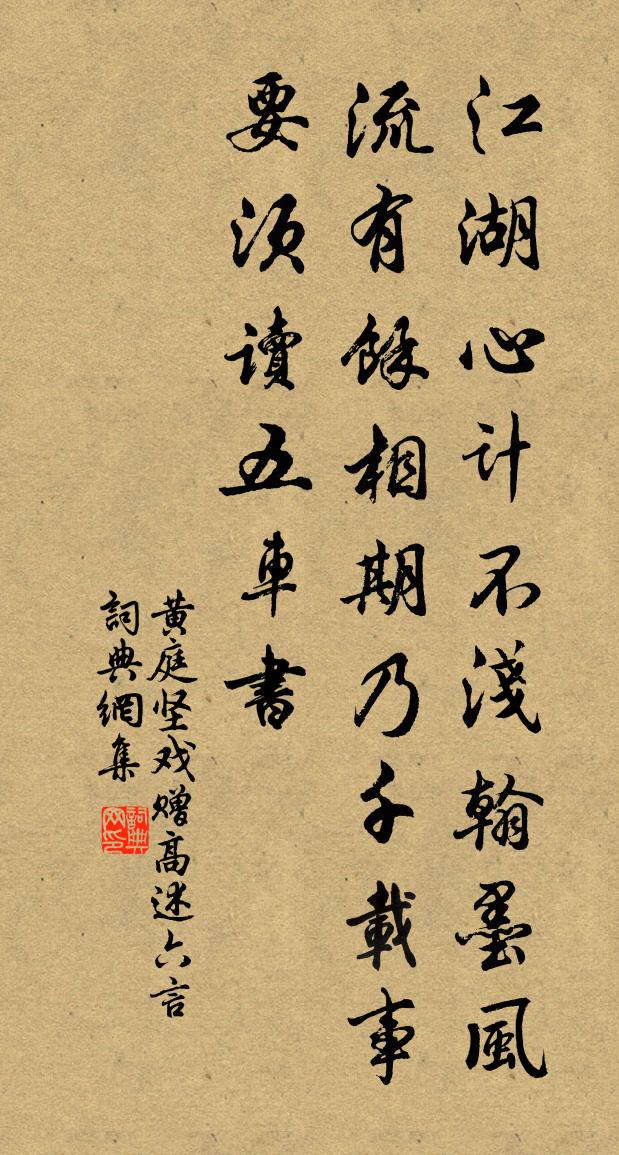 江湖心计不淺翰墨風
流有餘相期乃千載事
要須讀五車書
黄庭坚戏赠高述六言
詞典網集
詞典
网印